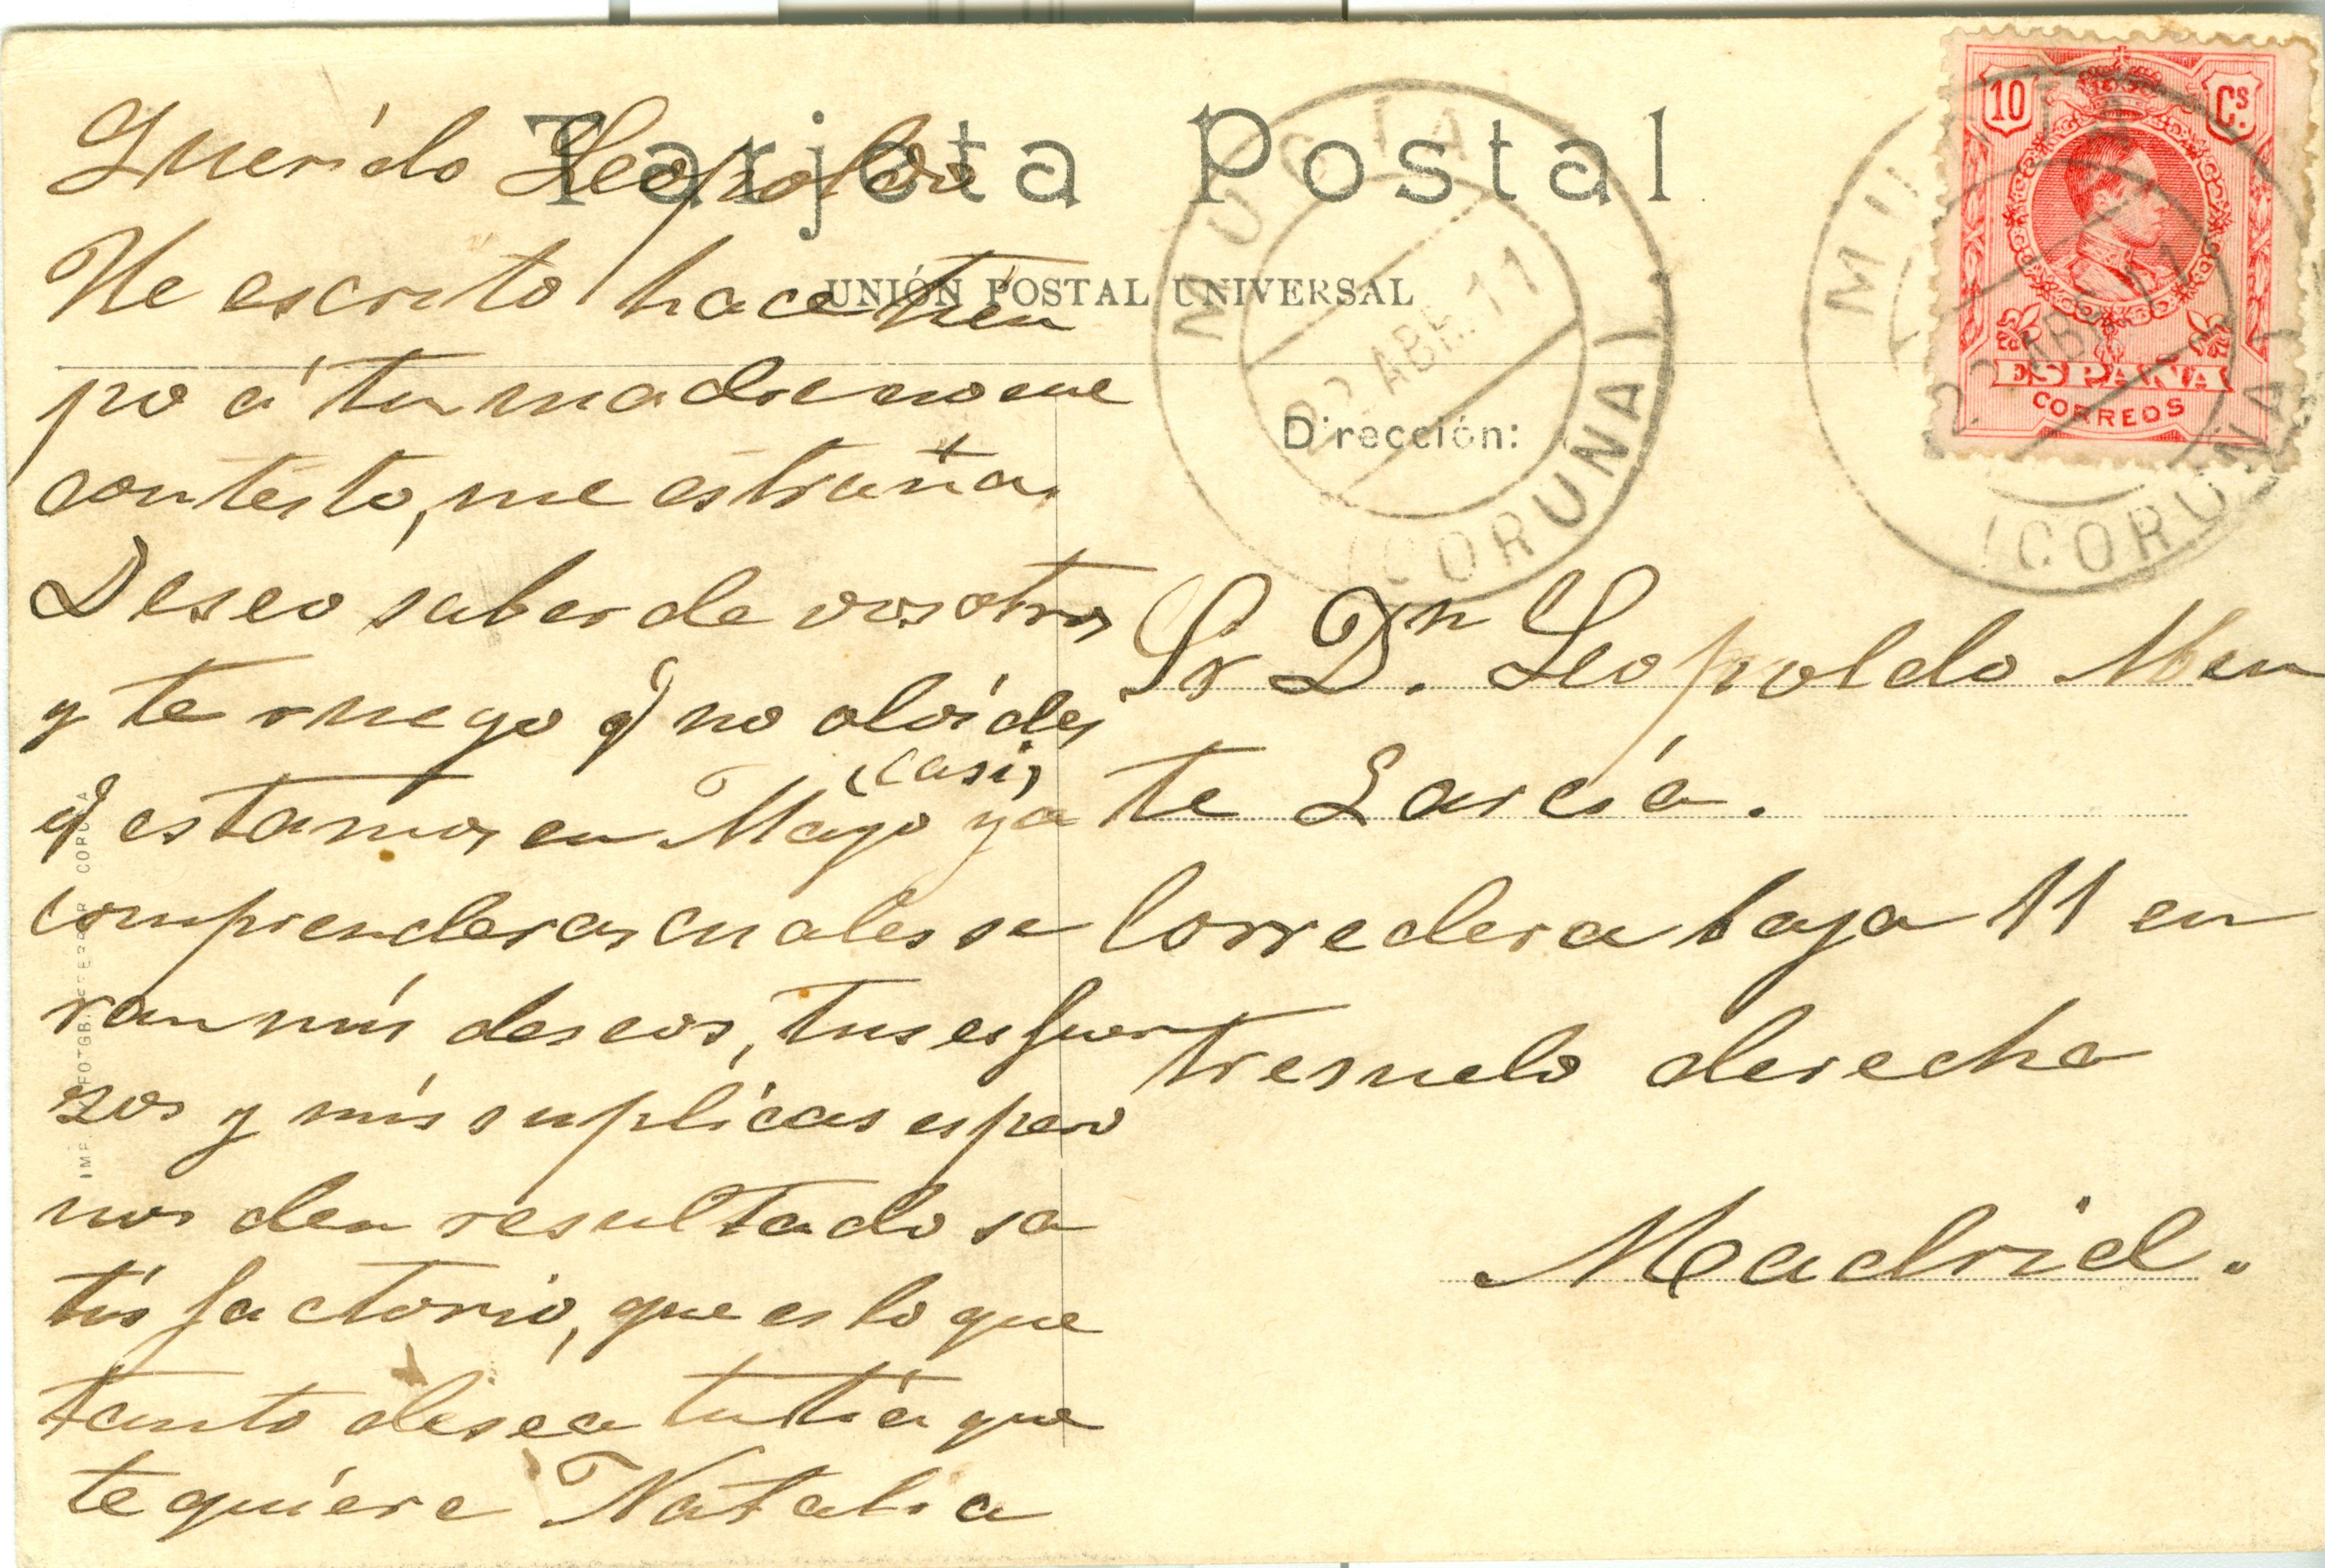 Tarjeta Postal
UNIÓN POSTAL UNIVERSAL
Dirección:
10 Cs.
ESPAÑA
CORREOS
MUGIA
22 ABR. 11
(CORUÑA)
MUGIA
22 ABR. 11
(CORUÑA)
Querido Leopoldo
He escrito hace tien
po á tu madre no me
contesto, me estraña.
Deseo saber de vosotros
y te ruego q no olvides
(casi)
q estamos en Mayo ya
comprenderas cuales se
ran mis deseos, tus esfuer
zos y mis suplicas espero
nos den resultado sa
tisfactorio, que es lo que
tanto desea tu tia que
te quiere Natalia
Sr Dn. Leopoldo Men
te Garcia.
Corredera baja 11 en
tresuelo derecha
Madrid.
IMP. FOTGB. FERRER CORUÑA